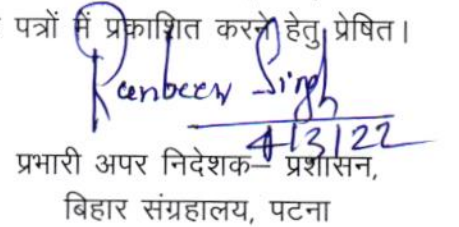 पत्रों में प्रकाशित करने हेतु प्रेषित।
Ranbeer Singh
4/3/22
प्रभारी अपर निदेशक– प्रशासन,
बिहार संग्रहालय, पटना